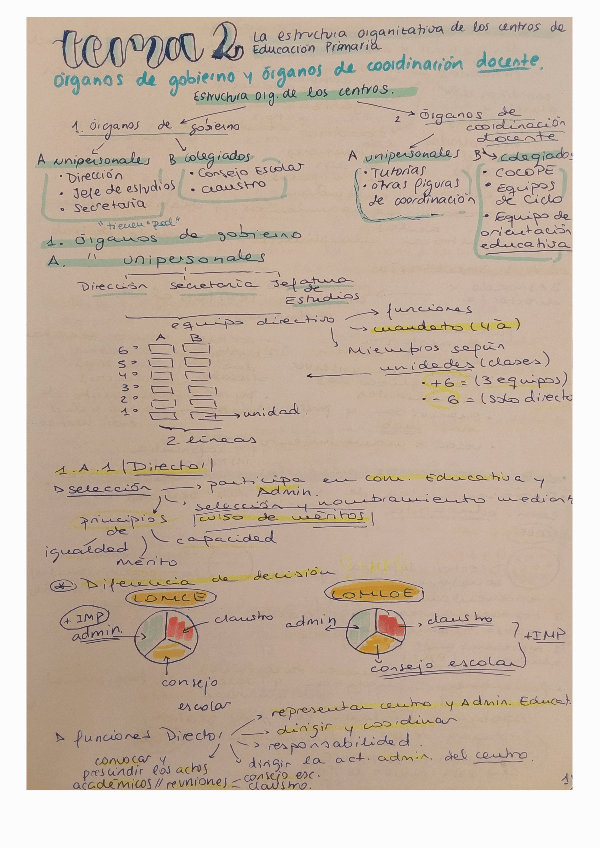 tema 2 La estructura organitativa de los centros de
Educación Primaria
órganos de gobierno y órganos de coordinación docente.
Estructura org. de los centros.
1. órganos de gobierno
2. órganos de
coordinación
docente
A unipersonales B colegiados A unipersonales B colegiados
• Dirección • Consejo Escolar • Tutorías • COCOPE
• Jefe de estudios • Claustro • otras figuras • Equipos
• Secretaría de coordinación de Ciclo
• Equipo de
orientación
educativa
1. órganos de gobierno
A. " unipersonales
Dirección Secretaría Jefatura
de
Estudios
equipo directivo → funciones
→ mandato (4 a)
Miembros según
unidades (clases)
• +6 = (3 equipos)
• - 6 = (sólo direct
A B
6º
5º
4º
3º
2º
1º → unidad
2 líneas
1.A.1 |Director|
▷ selección → participa en com. Educativa y
Admin.
selección y nombramiento mediant
principios |curso de méritos|
de
igualdad capacidad
mérito
* Diferencia de decisión
LOMCE LOMLOE
+ IMP
admin. claustro admin claustro
+IMP
consejo escolar
consejo
escolar
▷ funciones Director → representar centro y Admin. Educat.
→ dirigir y coordinar
→ responsabilidad.
convocar y • dirigir la act. admin. del centro.
presundir los actos
académicos // reuniones = consejo esc.
claustro.